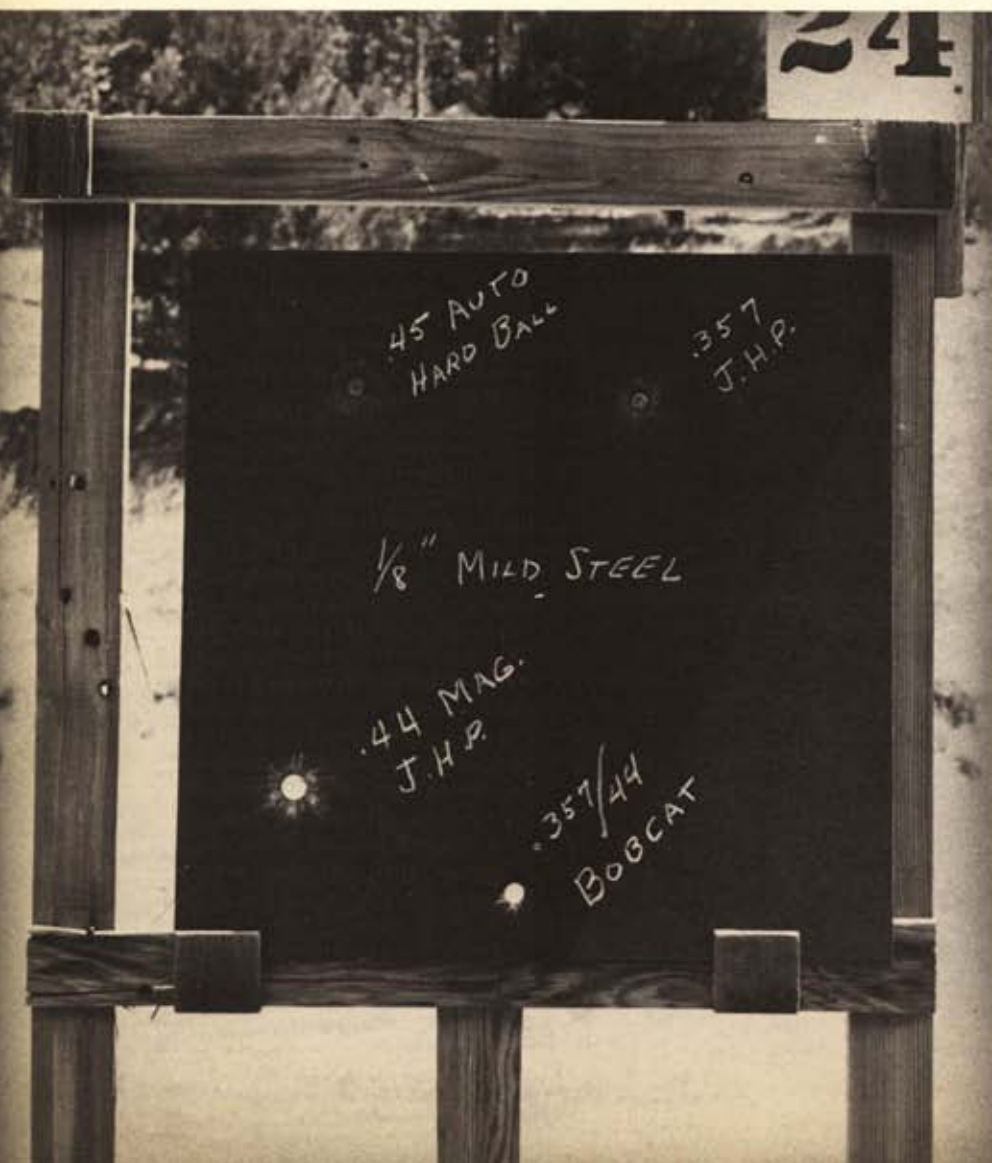 24
.45 AUTO
HARD BALL
.357
J.H.P.
1/8" MILD STEEL
.44 MAG.
J.H.P.
.357/44
BOBCAT